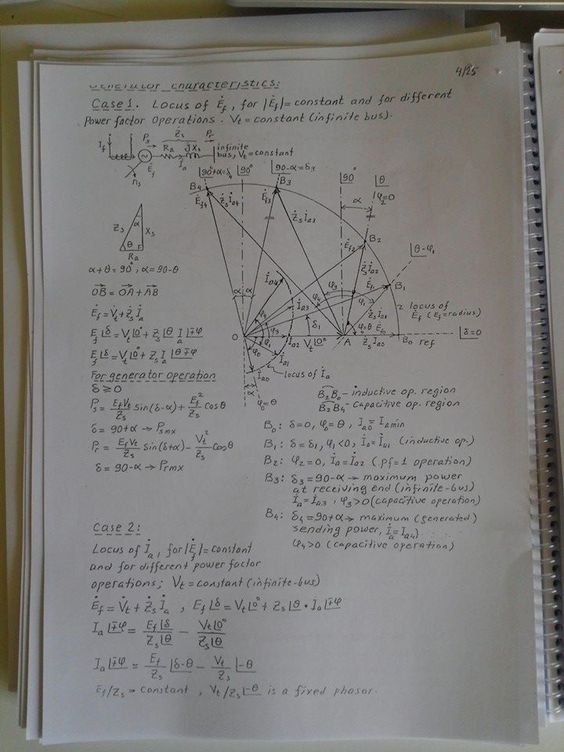 Generator characteristics:
4/25
Case 1. Locus of Ėf, for |Ėf|= constant and for different
Power factor operations. Vt = constant (infinite bus).
If
Ps
Żs
Pr
Ra
jXs
infinite
bus, Vt = constant
Ėf
İa
ns
Zs
α
Xs
θ
Ra
α+θ=90°; α=90-θ
OB = OA + AB
Ėf = V̇t + Żs İa
Ef∠δ = Vt∠0° + Zs∠θ Ia∠∓φ
Ef∠δ = Vt∠0° + Zs Ia∠θ∓φ
For generator operation
δ ≥ 0
Ps = EfVt/Zs sin(δ-α) + Ef²/Zs cosθ
δ = 90+α → Psmx
Pr = EfVt/Zs sin(δ+α) - Vt²/Zs cosθ
δ = 90-α → Prmx
∠90+α=δ4
∠90°
∠90-α=δ3
∠90°
∠θ
φ2=0
B4
B3
Ėf4
Żsİa4
Ėf3
Żsİa3
α
B2
Ėf2
Żsİa2
∠θ-φ1
B1
Ėf1
Żsİa1
locus of
Ėf (Ef=radius)
İa4
İa3
α
α
δ1
O
İa2
Vt∠0°
A
Żsİa0
B0
ref
∠δ=0
İa1
İa0
locus of İa
φ0=θ
B2B0 - inductive op. region
B2B4 - capacitive op. region
B0: δ=0, φ0=θ, İa0=Iamin
B1: δ=δ1, φ1<0, İa=İa1 (inductive op.)
B2: φ2=0, İa=İa2 (pf=1 operation)
B3: δ3=90-α → maximum power
at receiving end (infinite-bus)
İa=İa3, φ3>0 (capacitive operation)
B4: δ4=90+α → maximum (generated)
sending power, İa=İa4)
φ4>0 (capacitive operation)
Case 2:
Locus of İa, for |Ėf|=constant
and for different power factor
operations; Vt=constant (infinite-bus)
Ėf = V̇t + Żs İa , Ef∠δ = Vt∠0° + Zs∠θ • Ia∠∓φ
Ia∠∓φ = Ef∠δ/Zs∠θ - Vt∠0°/Zs∠θ
Ia∠∓φ = Ef/Zs ∠δ-θ - Vt/Zs ∠-θ
Ef/Zs = constant , Vt/Zs∠-θ is a fixed phasor.